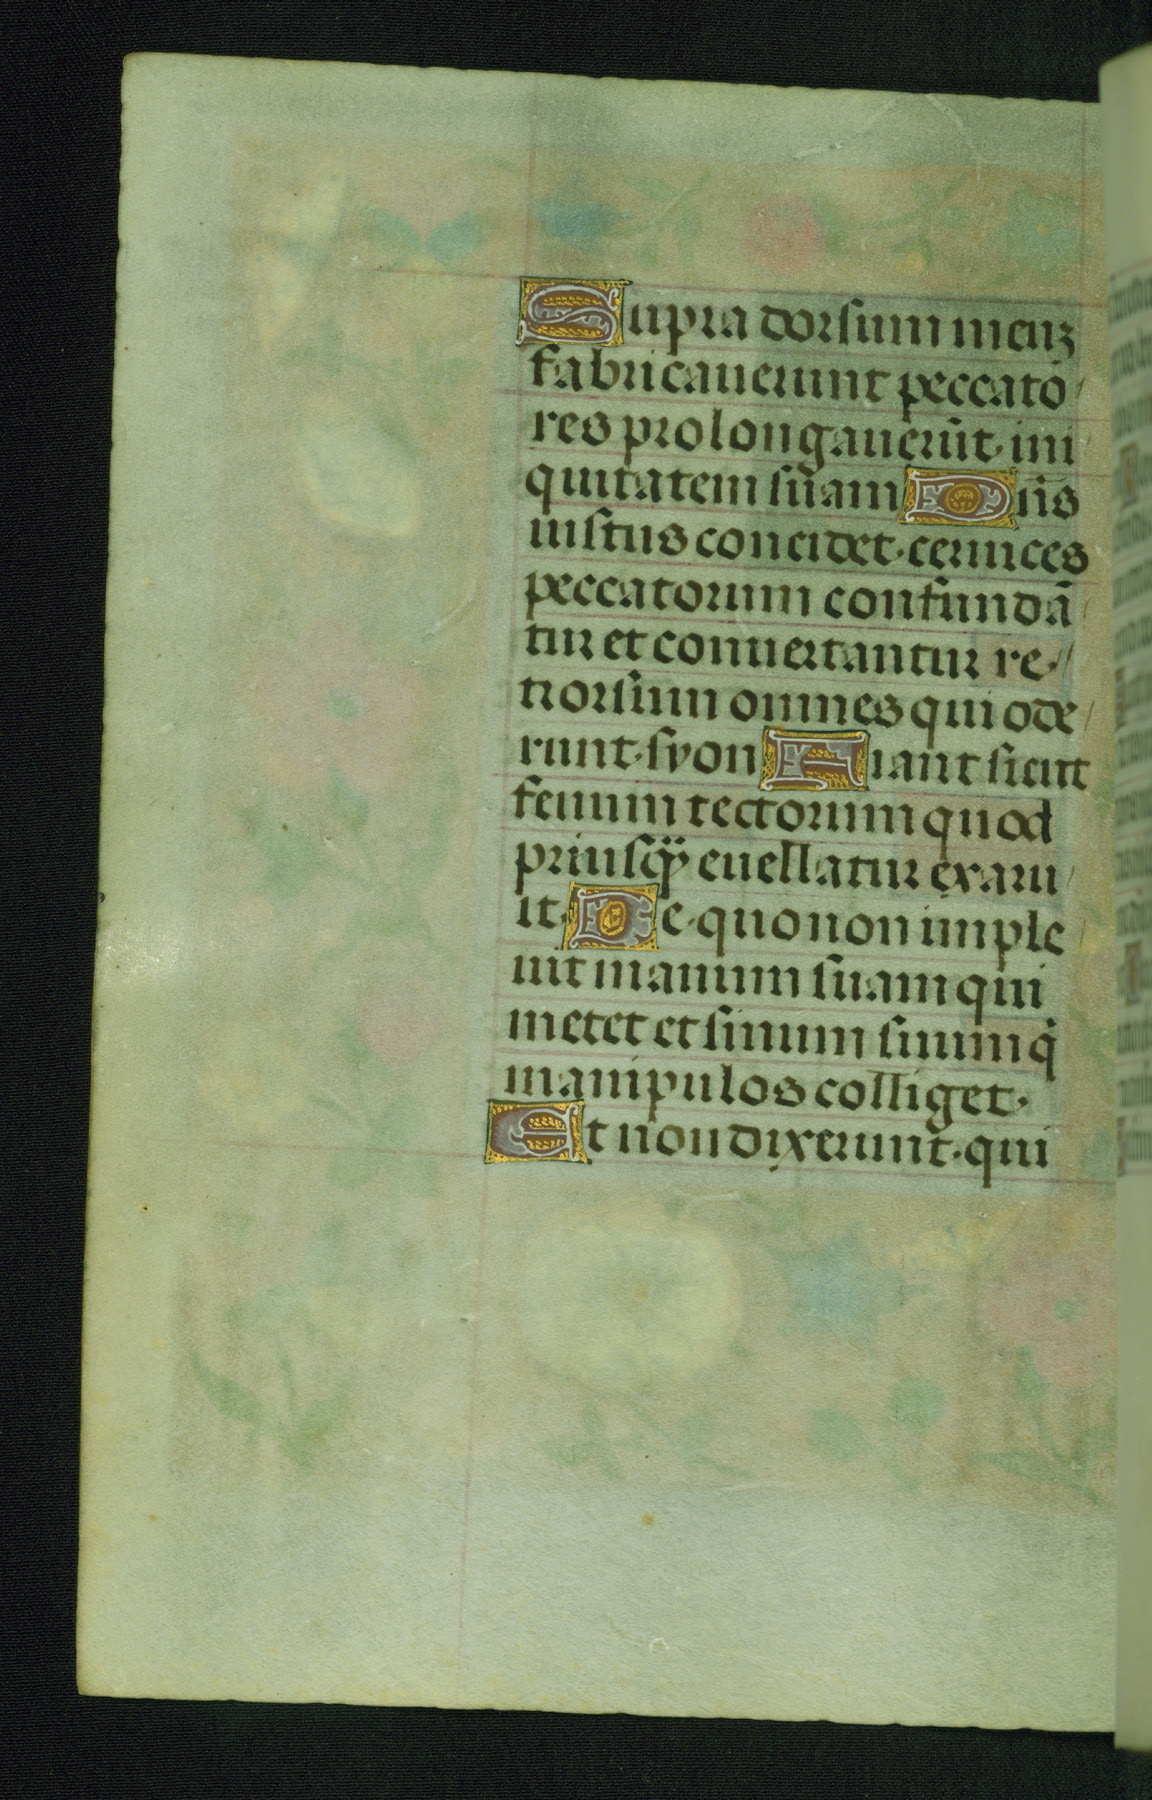 Supra dorsum meuʒ
fabricauerunt peccato
res prolongauerūt· ini
quitatem suam Dn̄s
iustus concidet· ceruices
peccatorum confundā
tur et conuertantur re·
trorsum omnes qui ode
runt· syon Fiant sicut
fenum tectorum quod
priusq̄ȝ euellatur exaru
it· De· quo non imple
uit manum suam qui
metet et sinum suum q̇
manipulos colliget·
Et non dixerunt· qui